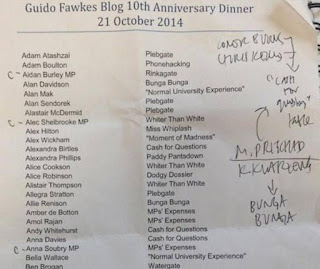 Guido Fawkes Blog 10th Anniversary Dinner
21 October 2014
Adam Atashzai Plebgate
Adam Boulton Phonehacking
C - Aidan Burley MP Rinkagate
Alan Davidson Bunga Bunga
Alan Mak "Normal University Experience"
Alan Sendorek Plebgate
Alastair McDermid Plebgate
C - Alec Shelbrooke MP Whiter Than White
Alex Hilton Miss Whiplash
Alex Wickham "Moment of Madness"
Alexandra Birtles Cash for Questions
Alexandra Phillips Paddy Pantsdown
Alice Cookson Whiter Than White
Alice Robinson Dodgy Dossier
Alistair Thompson Whiter Than White
Allegra Stratton Plebgate
Allie Renison Bunga Bunga
Amber de Botton MPs' Expenses
Amol Rajan MPs' Expenses
Andy Whitehurst Cash for Questions
Anna Davies Cash for Questions
C - Anna Soubry MP MPs' Expenses
Bella Wallace "Normal University Experience"
Ben Brogan Watergate
CONOR BURNS
"CASH
FOR
questions"
table
M. PRITCHARD
K KWARTENG
BUNGA
BUNGA